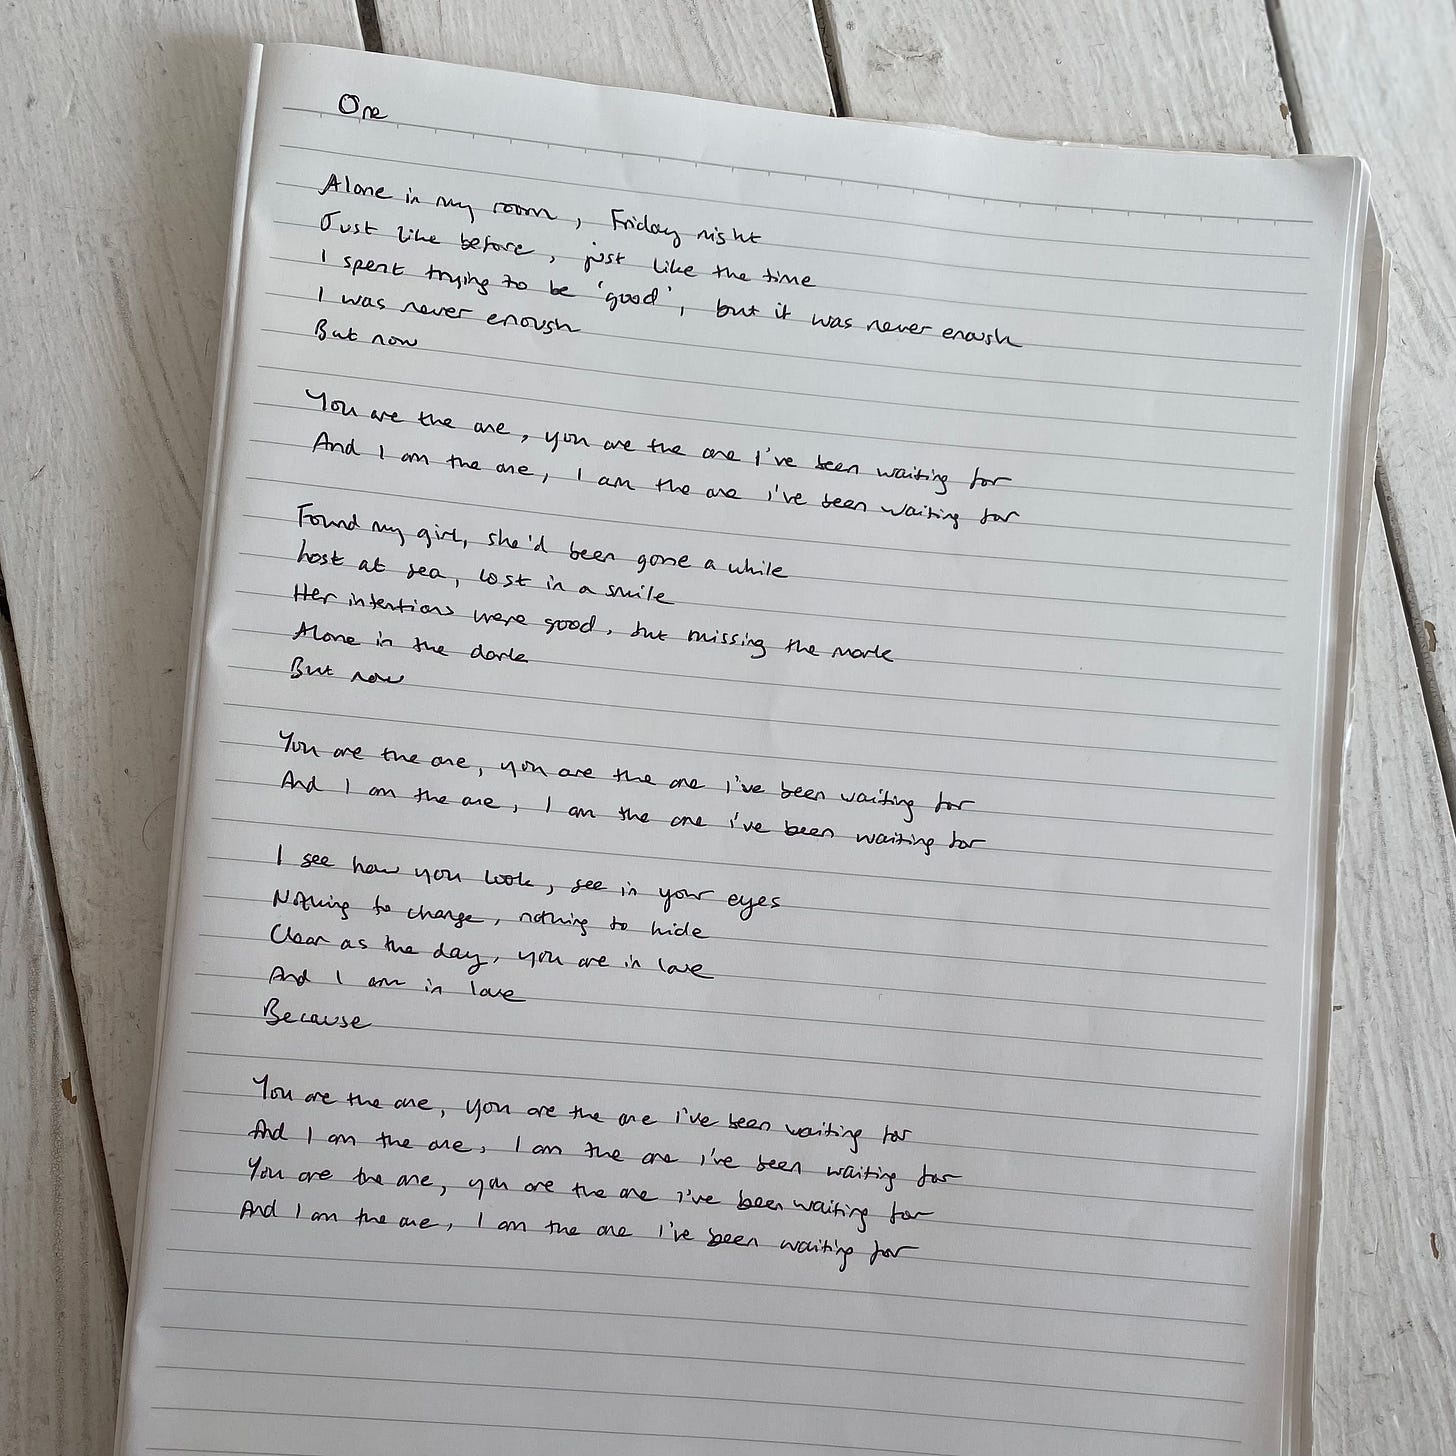 One
Alone in my room, Friday night
Just like before, just like the time
I spent trying to be 'good', but it was never enough
I was never enough
But now
You are the one, you are the one I've been waiting for
And I am the one, I am the one I've been waiting for
Found my girl, she'd been gone a while
Lost at sea, lost in a smile
Her intentions were good, but missing the mark
Alone in the dark
But now
You are the one, you are the one I've been waiting for
And I am the one, I am the one I've been waiting for
I see how you look, see in your eyes
Nothing to change, nothing to hide
Clear as the day, you are in love
And I am in love
Because
You are the one, you are the one I've been waiting for
And I am the one, I am the one I've been waiting for
You are the one, you are the one I've been waiting for
And I am the one, I am the one I've been waiting for